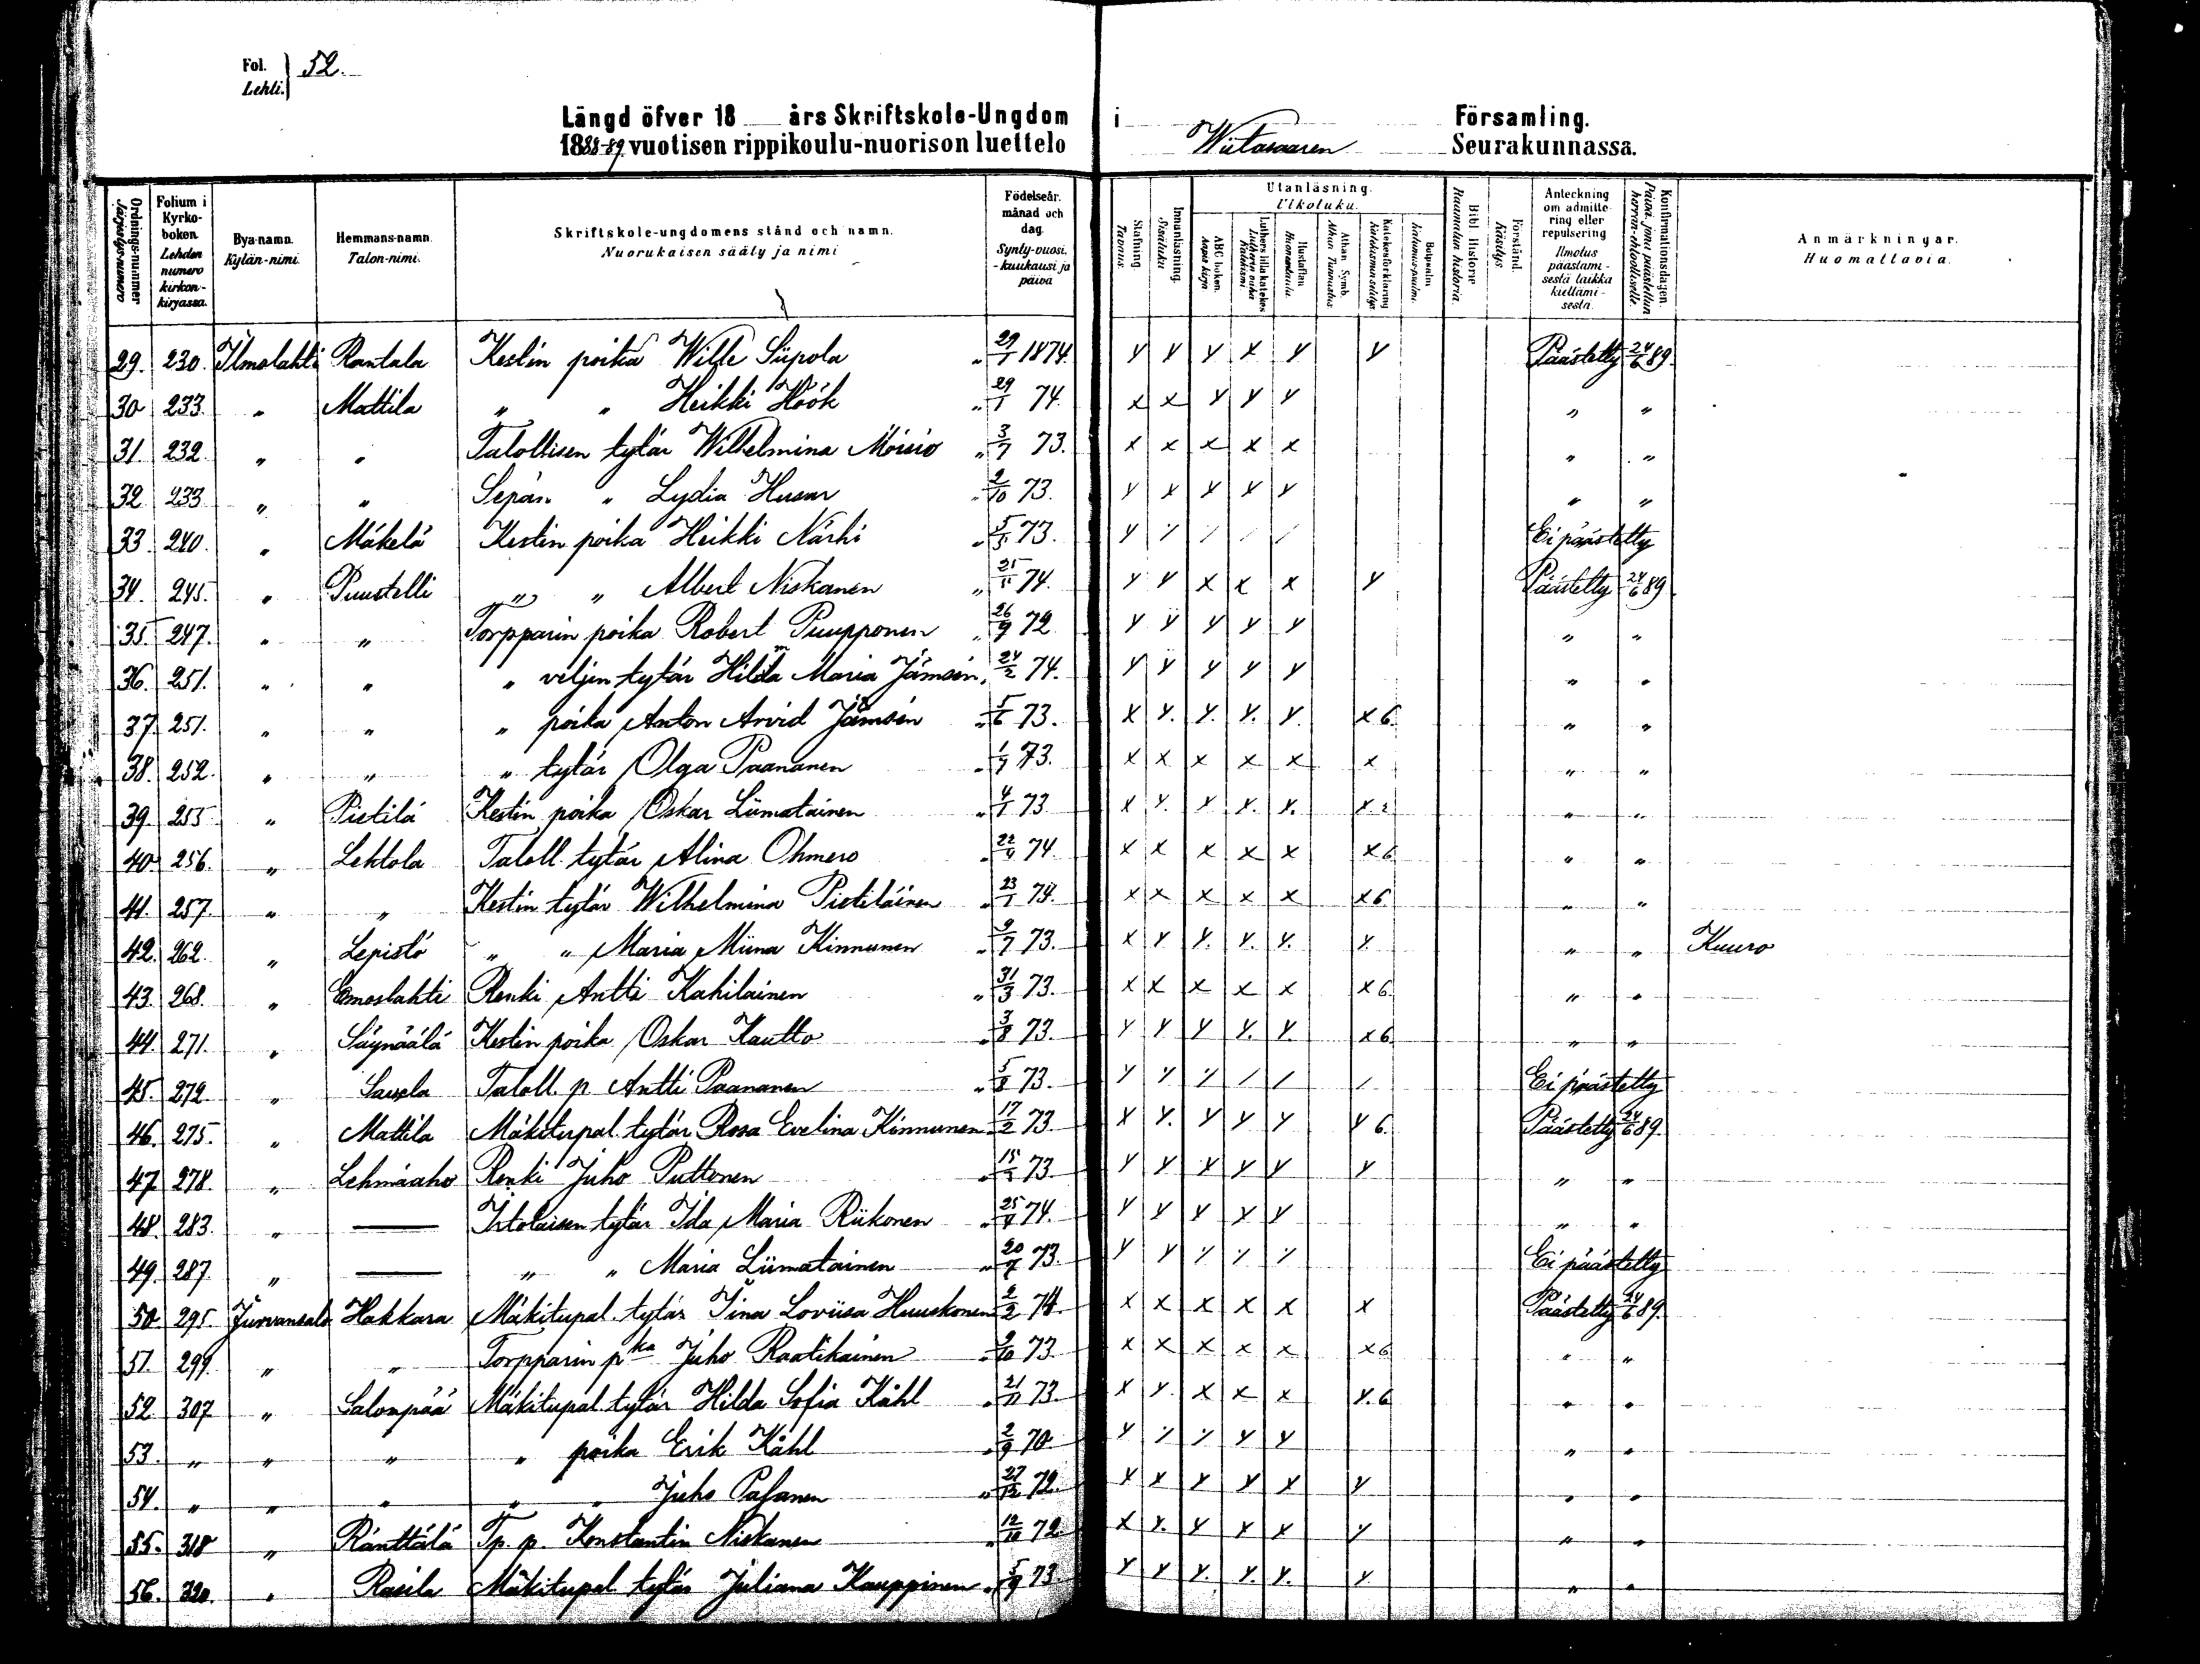 Fol. Lehti. 52.
Längd öfver 18 års Skriftskole-Ungdom i Församling.
1888-89 vuotisen rippikoulu-nuorison luettelo Wiitasaaren Seurakunnassa.
Ordnings-nummer Järjestys-numero
Folium i Kyrko-boken. Lehden numero kirkon-kirjassa.
Bya-namn. Kylän-nimi.
Hemmans-namn. Talon-nimi.
Skriftskole-ungdomens stånd och namn. Nuorukaisen sääty ja nimi
Födelseår. månad och dag. Synty-vuosi. -kuukausi ja päivä
Stafning Tavuus.
Innanläsning. Sisäluku
Utanläsning. Ulkoluku.
ABC boken. Aapis kirja
Luthers lilla katekes Lutherin vähä Katekismi
Hustaflan Huoneentaulu.
Athan. Symb. Athan. Tunnustus.
Katekesförklaring Katekismuksen selitys
Botpsalm Katumus-psalmi.
Bibl. Historie Raamatun historia.
Förstånd. Käsitys
Anteckning om admittering eller repulsering Ilmotus päästämisestä taikka kieltämisestä.
Konfirmationsdagen. Päivä, jona päästettiin herran-ehtoolliselle.
Anmärkningar. Huomattavia.
29. 230. Ilmolahti Rantala Kestin poika Wille Siipola " 29/1 1874. Y Y Y X Y Y Päästetty 24/6 89.
30 233. " Mattila " " Heikki Höök " 29/1 74. X X Y Y Y " "
31. 232. " " Talollisen tytär Wilhelmina Moisio " 3/7 73. X X X X X " "
32 233 " " Sepän " Lydia Husar " 2/10 73. Y X Y Y Y " "
33. 240. " Mäkelä Kestin poika Heikki Närhi " 5/5 73. Y / / / / Ei päästetty
34. 245. " Puustelli " " Albert Niskanen " 25/11 74. Y Y X X X Y Päästetty 24/6 89.
35. 247. " " Torpparin poika Robert Puupponen " 26/9 72 Y Y Y Y Y " "
36. 251. " " " veljen tytär Hilda Maria Jämsén " 24/2 74. Y Y Y Y Y " "
37. 251. " " " poika Anton Arvid Jämsén " 5/6 73. X Y. Y. Y. Y. X 6. " "
38. 252. " " " tytär Olga Paananen " 1/7 73. X X X X X X " "
39. 255 " Pietilä Kestin poika Oskar Liimatainen " 4/1 73 X Y. Y Y. Y. X 2 " "
40. 256. " Lehtola Taloll. tytär Alina Ohmero " 22/4 74. X X X X X X 6 " "
41. 257. " " Kestin tytär Wilhelmina Pietiläinen " 23/1 74. X X X X X X 6 " "
42. 262. " Lepistö " " Maria Miina Kinnunen " 9/7 73. X Y Y. Y. Y. Y. " " Kuuro
43. 268. " Emoslahti Renki Antti Kahilainen " 31/3 73. X X X X X X 6. " "
44. 271. " Säynäälä Kestin poika Oskar Kautto " 3/8 73. Y Y Y Y. Y. X 6 " "
45. 272. " Savela Taloll. p. Antti Paananen " 5/8 73. Y Y / / / / Ei päästetty
46. 275. " Mattila Mäkitupal. tytär Rosa Evelina Kinnunen " 17/2 73. X Y. Y Y Y Y 6. Päästetty 24/6 89.
47 278. " Lehmäaho Renki Juho Puttonen " 73. Y Y Y Y Y Y " "
48. 283. " — Itolaisen tytär Ida Maria Riikonen " 25/4 74. Y Y Y Y Y " "
49. 287. " — " " Maria Liimatainen " 20/7 73. Y Y / / / Ei päästetty
50. 295. Jurvansalo Hakkara Mäkitupal. tytär Iina Loviisa Huuskonen 2/2 74. X X X X X X Päästetty 24/6 89.
51. 299. " " Torpparin pka Juho Raatikainen " 9/10 73. X X X X X X 6 " "
52. 307 " Salonpää Mäkitupal. tytär Hilda Sofia Kåhl " 21/11 73. X Y. X X X Y. 6 " "
53. " " " " poika Erik Kåhl " 2/9 70 Y / / Y Y " "
54. " " " " " Juho Pasanen " 27/12 72. X X Y Y X Y " "
55. 318 " Ränttälä Tp. p. Konstantin Niskanen " 12/10 72 X Y. Y Y X Y " "
56. 320. " Rasila Mäkitupal tytär Juliana Kauppinen " 5/9 73. Y Y Y. Y. Y. Y. " "